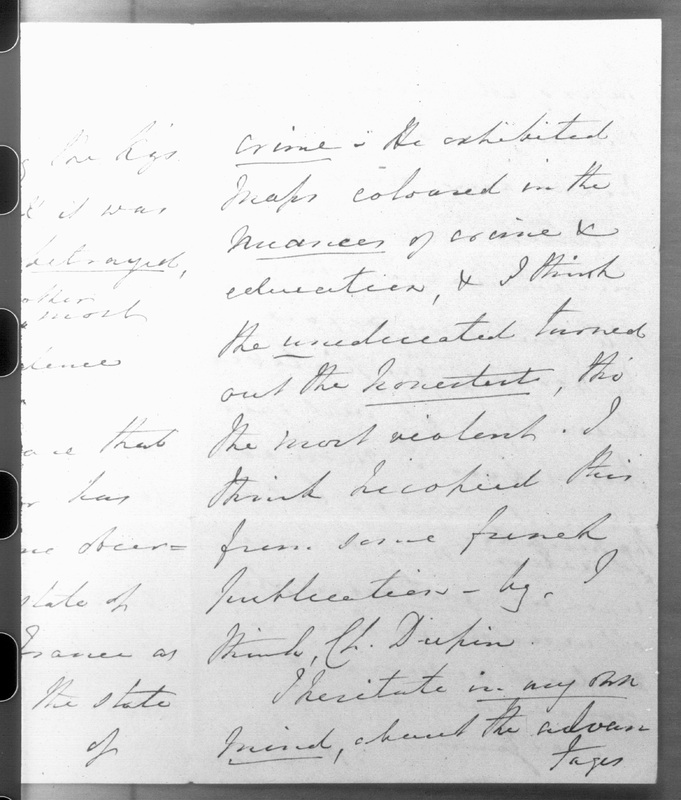 the Kgs
it was
betrayed,
other
most
that
has
obser=
state of
France as
the state
of
crime. He exhibited
maps coloured in the
nuances of crime &
education, & I think
the uneducated turned
out the honestest, tho
the most violent. I
think he copied this
from some french
publication - by, I
think, Ch. Dupin.
I hesitate in my own
mind, about the advan
tages